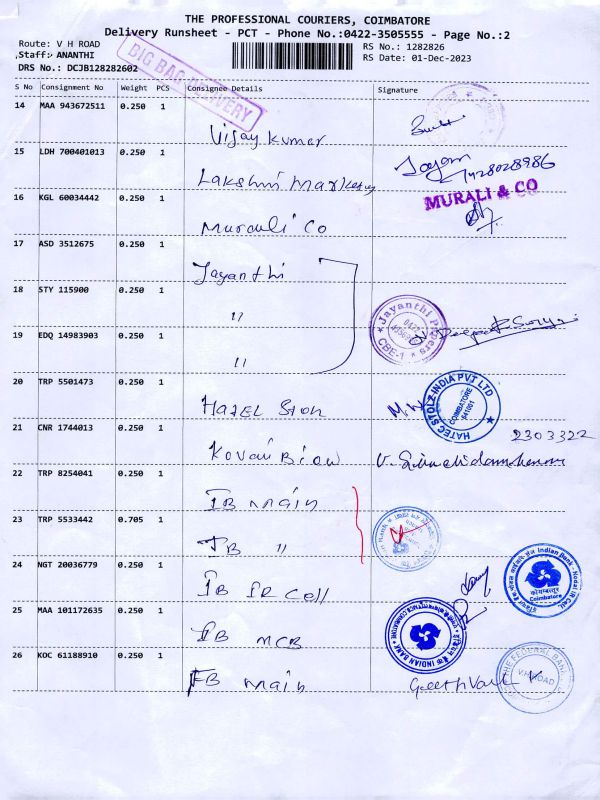 THE PROFESSIONAL COURIERS, COIMBATORE
Delivery Runsheet - PCT - Phone No.:0422-3505555 - Page No.:2
Route: V H ROAD
RS No.: 1282826
Staff: ANANTHI
RS Date: 01-Dec-2023
DRS No.: DCJB128282602
BIG BAG DELIVERY
S No Consignment No Weight PCS Consignee Details Signature
14 MAA 943672511 0.250 1
Vijay Kumar
15 LDH 700401013 0.250 1
Lakshmi
16 KGL 60034442 0.250 1
MURALI & CO
Murauli Co
17 ASD 3512675 0.250 1
Jayanthi
18 STY 115900 0.250 1
"
Jayanthi Papers
CBE-1
19 EDQ 14983903 0.250 1
"
20 TRP 5501473 0.250 1
HAZEL Stoh
HATEC STOLZ INDIA PVT LTD
COIMBATORE
641001
21 CNR 1744013 0.250 1
Kovai
2303322
22 TRP 8254041 0.250 1
IB main
23 TRP 5533442 0.705 1
IB "
24 NGT 20036779 0.250 1
IB IR Cell
Indian Bank
कोयम्बत्तूर
Coimbatore
25 MAA 101172635 0.250 1
IB MCB
INDIAN BANK
26 KOC 61188910 0.250 1
FB main
THE FEDERAL BANK
V.H. ROAD